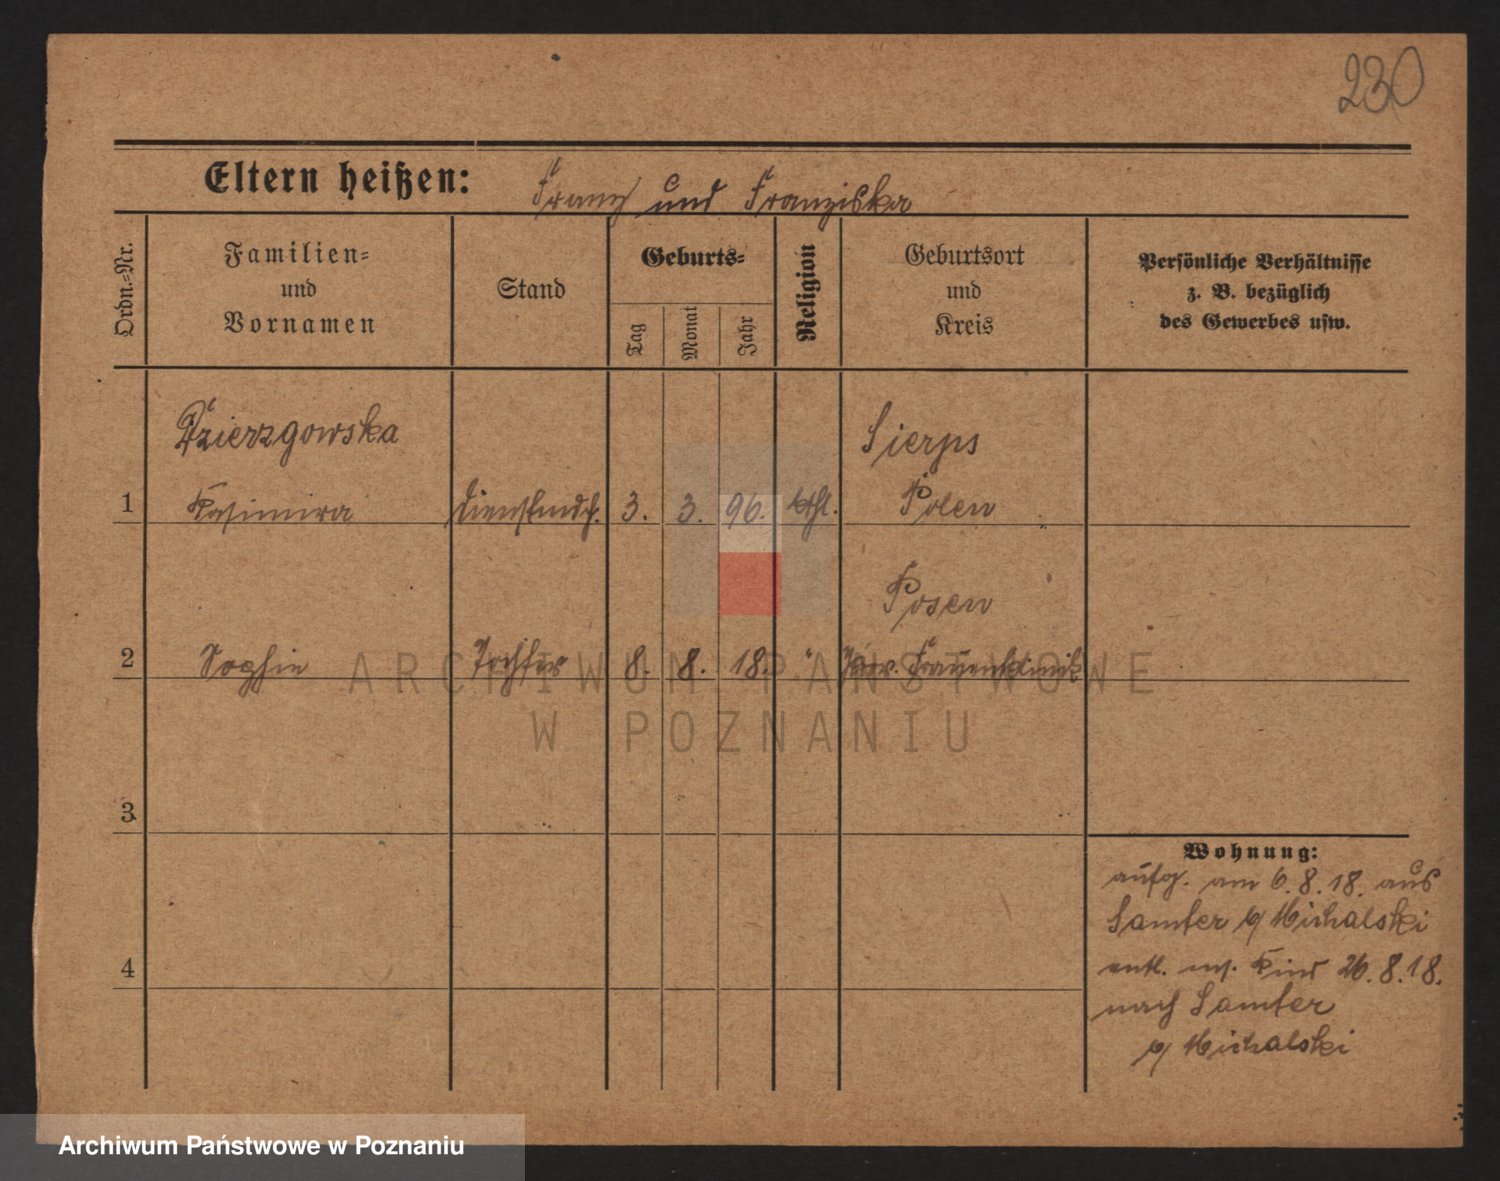 230
Eltern heißen: Franz und Franziska
Ordn.-Nr.
Familien-
und
Vornamen
Stand
Geburts-
Tag
Monat
Jahr
Religion
Geburtsort
und
Kreis
Persönliche Verhältnisse
z. B. bezüglich
des Gewerbes usw.
Dzierzgowska
Sierps
1 Kasimira Dienstmdch. 3. 3. 96. kthl. Polen
Posen
2 Sophie Tochter 8. 8. 18. " Prov. Frauenklinik
3
4
Wohnung:
aufg. am 6.8.18. aus
Samter b/ Michalski
entl. m. Kind 26.8.18.
nach Samter
b/ Michalski
ARCHIWUM PAŃSTWOWE
W POZNANIU
Archiwum Państwowe w Poznaniu